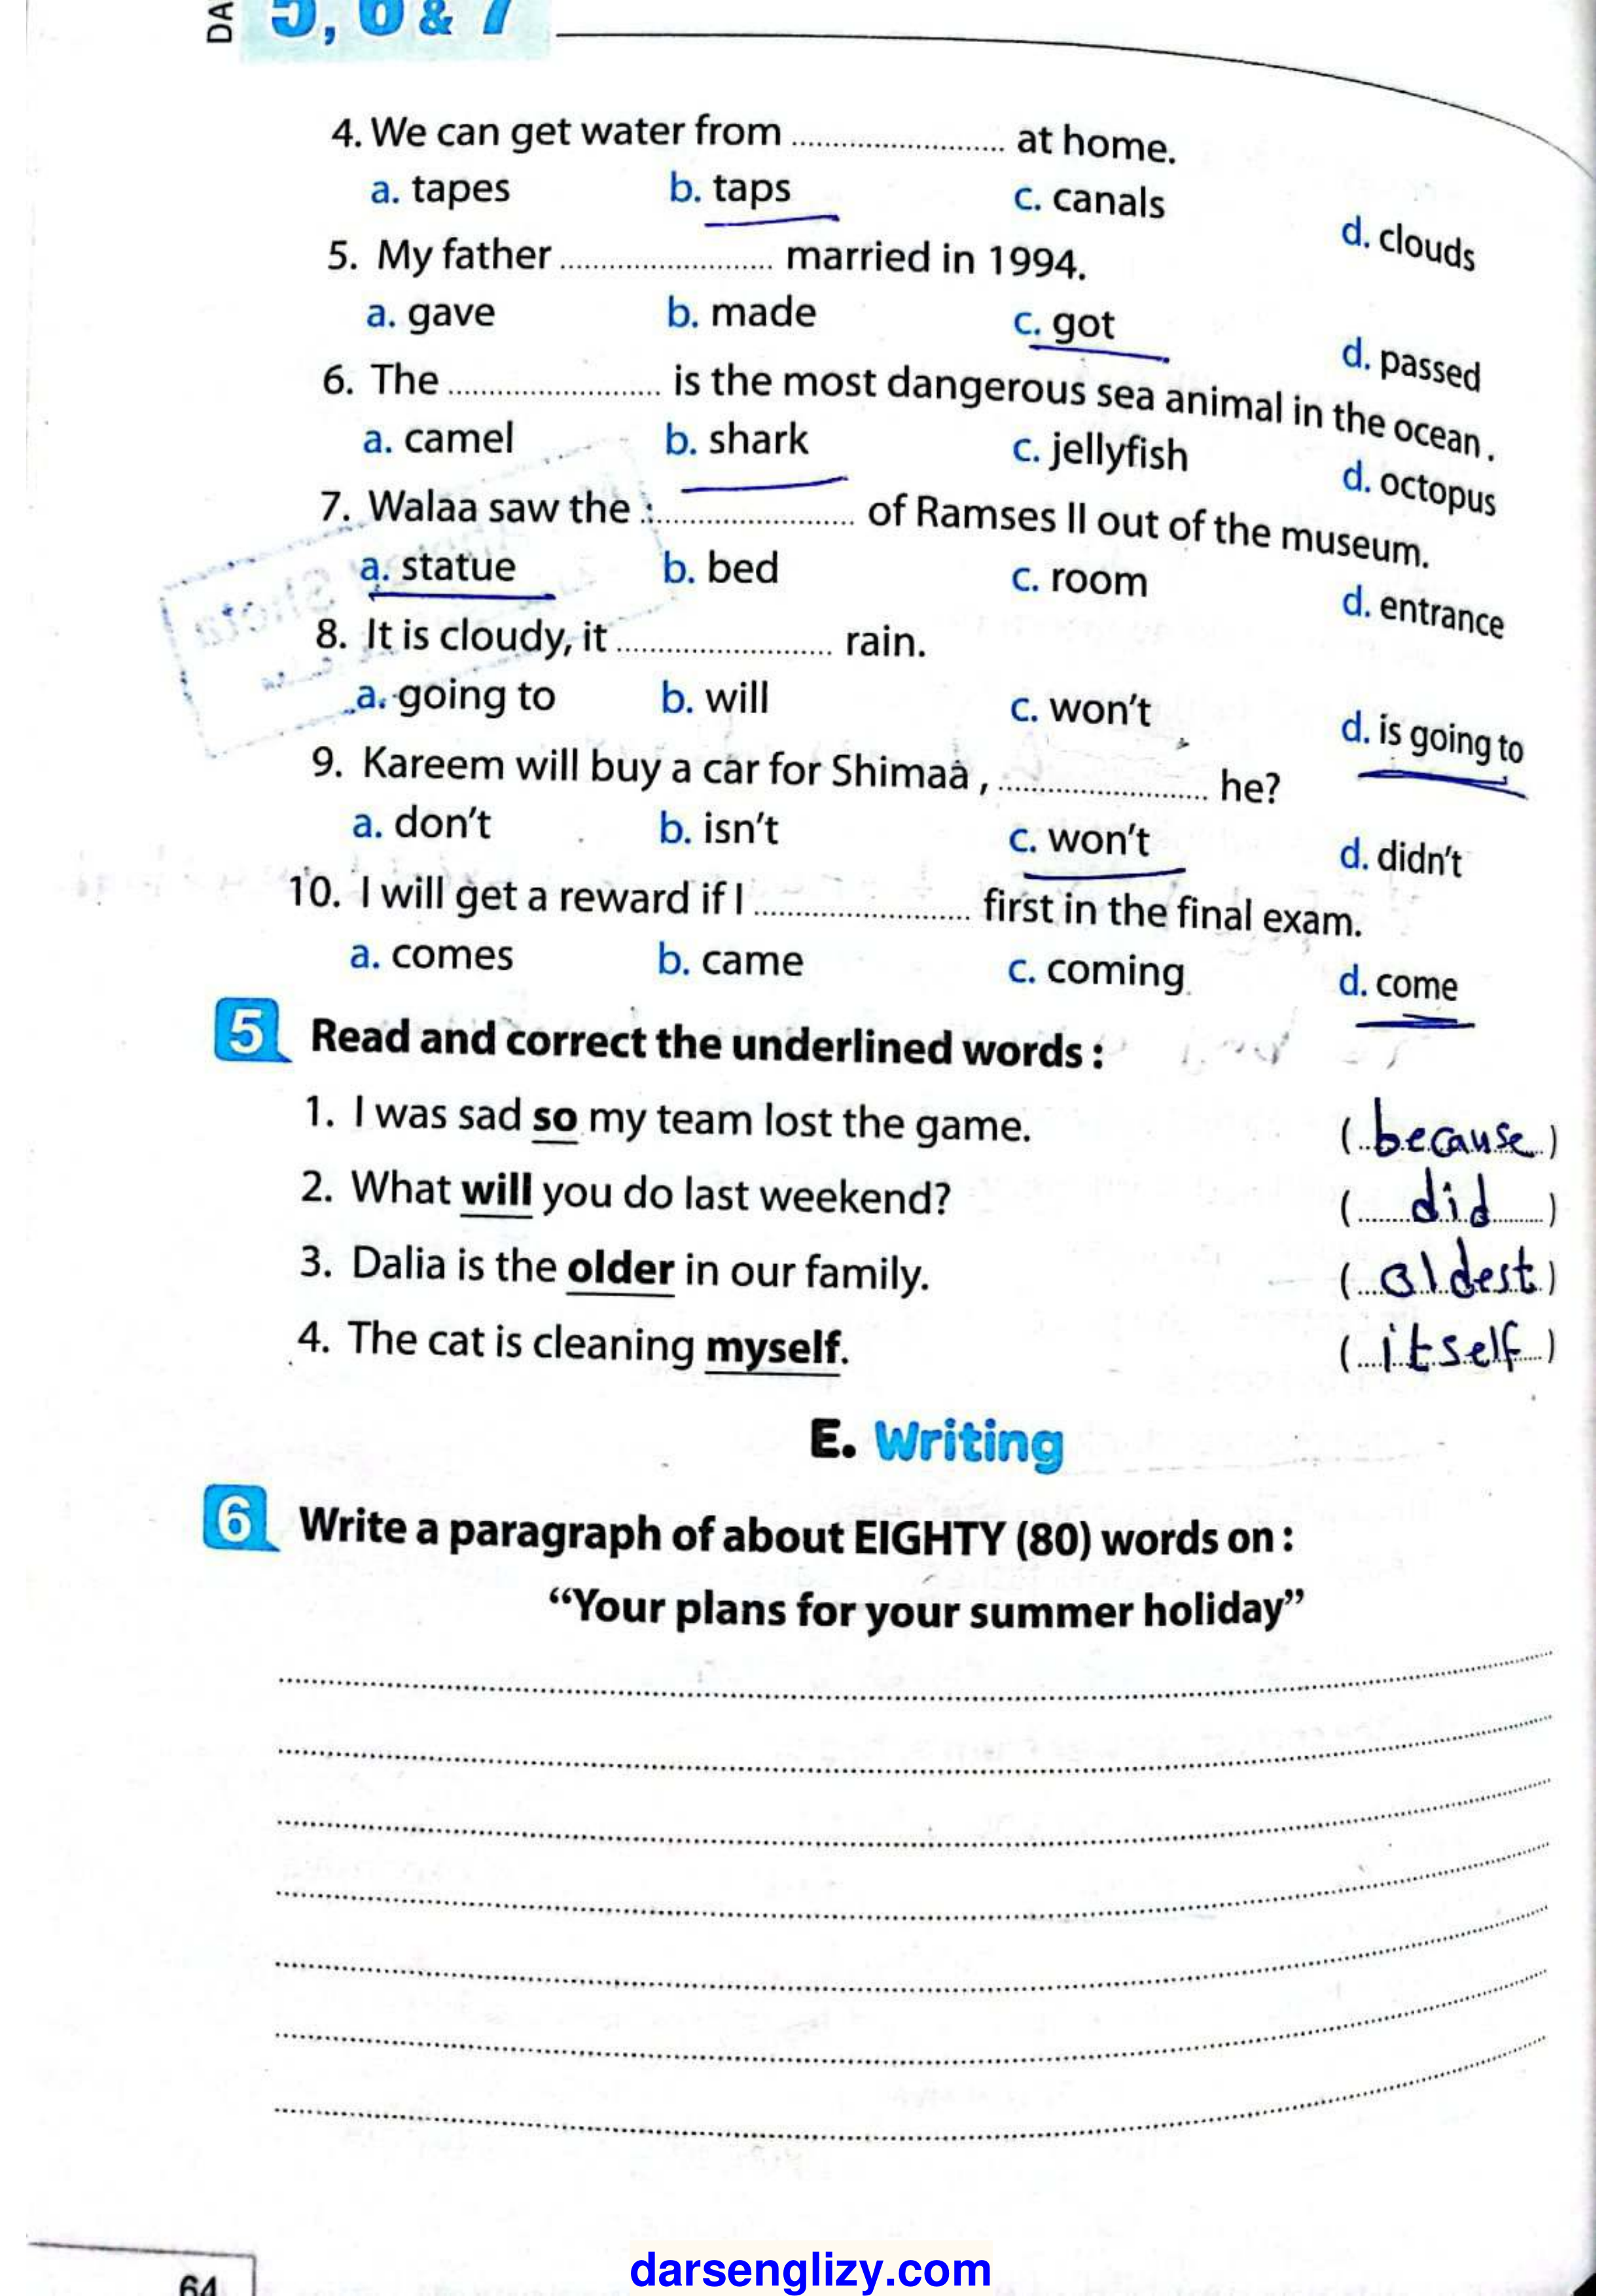 DA
5, 6 & 7
4. We can get water from ........................ at home.
a. tapes b. taps c. canals d. clouds
5. My father ........................ married in 1994.
a. gave b. made c. got d. passed
6. The ........................ is the most dangerous sea animal in the ocean.
a. camel b. shark c. jellyfish d. octopus
7. Walaa saw the ........................ of Ramses II out of the museum.
a. statue b. bed c. room d. entrance
8. It is cloudy, it ........................ rain.
a. going to b. will c. won't d. is going to
9. Kareem will buy a car for Shimaa , ........................ he?
a. don't b. isn't c. won't d. didn't
10. I will get a reward if I ........................ first in the final exam.
a. comes b. came c. coming d. come
5 Read and correct the underlined words :
1. I was sad so my team lost the game. (because)
2. What will you do last weekend? (did)
3. Dalia is the older in our family. (oldest)
4. The cat is cleaning myself. (itself)
E. Writing
6 Write a paragraph of about EIGHTY (80) words on :
“Your plans for your summer holiday”
64
darsenglizy.com